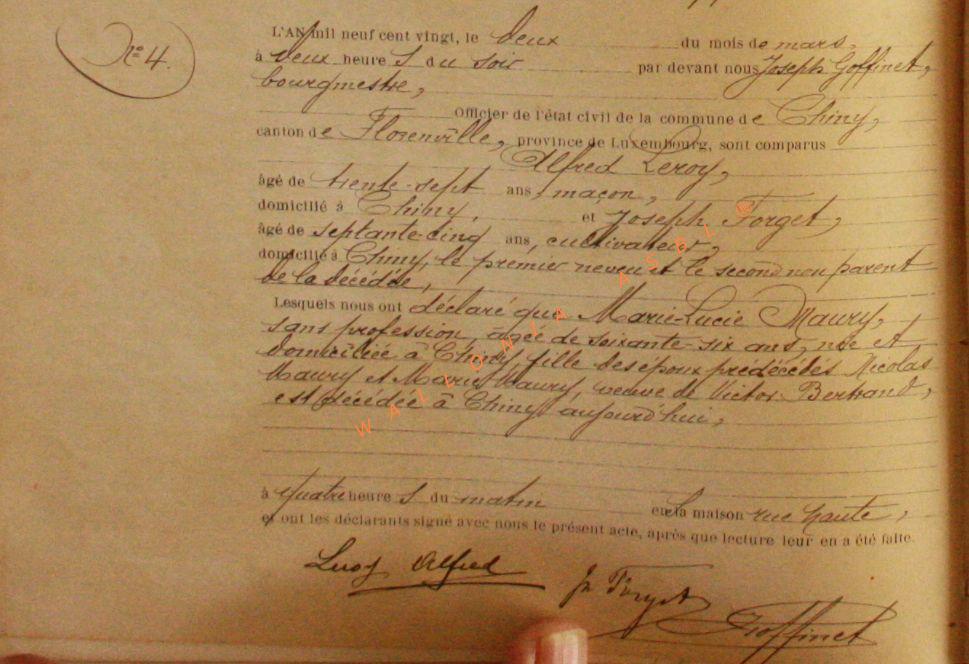 N° 4.
L'AN mil neuf cent vingt, le deux du mois de mars,
à deux heures du soir par devant nous Joseph Goffinet,
bourgmestre,
Officier de l'état civil de la commune de Chiny,
canton de Florenville, province de Luxembourg, sont comparus
Alfred Leroy,
âgé de trente-sept ans, maçon,
domicilié à Chiny, et Joseph Forget,
âgé de septante-cinq ans, cultivateur,
domicilié à Chiny, le premier neveu et le second non parent
de la décédée,
Lesquels nous ont déclaré que Marie-Lucie Maury,
sans profession, âgée de soixante-six ans, née et
domiciliée à Chiny, fille des époux prédécédés Nicolas
Maury et Marie Maury, veuve de Victor Bertrand,
est décédée à Chiny aujourd'hui,
à quatre heures du matin en la maison rue haute,
et ont les déclarants signé avec nous le présent acte, après que lecture leur en a été faite.
Leroy Alfred
Jh Forget
Goffinet